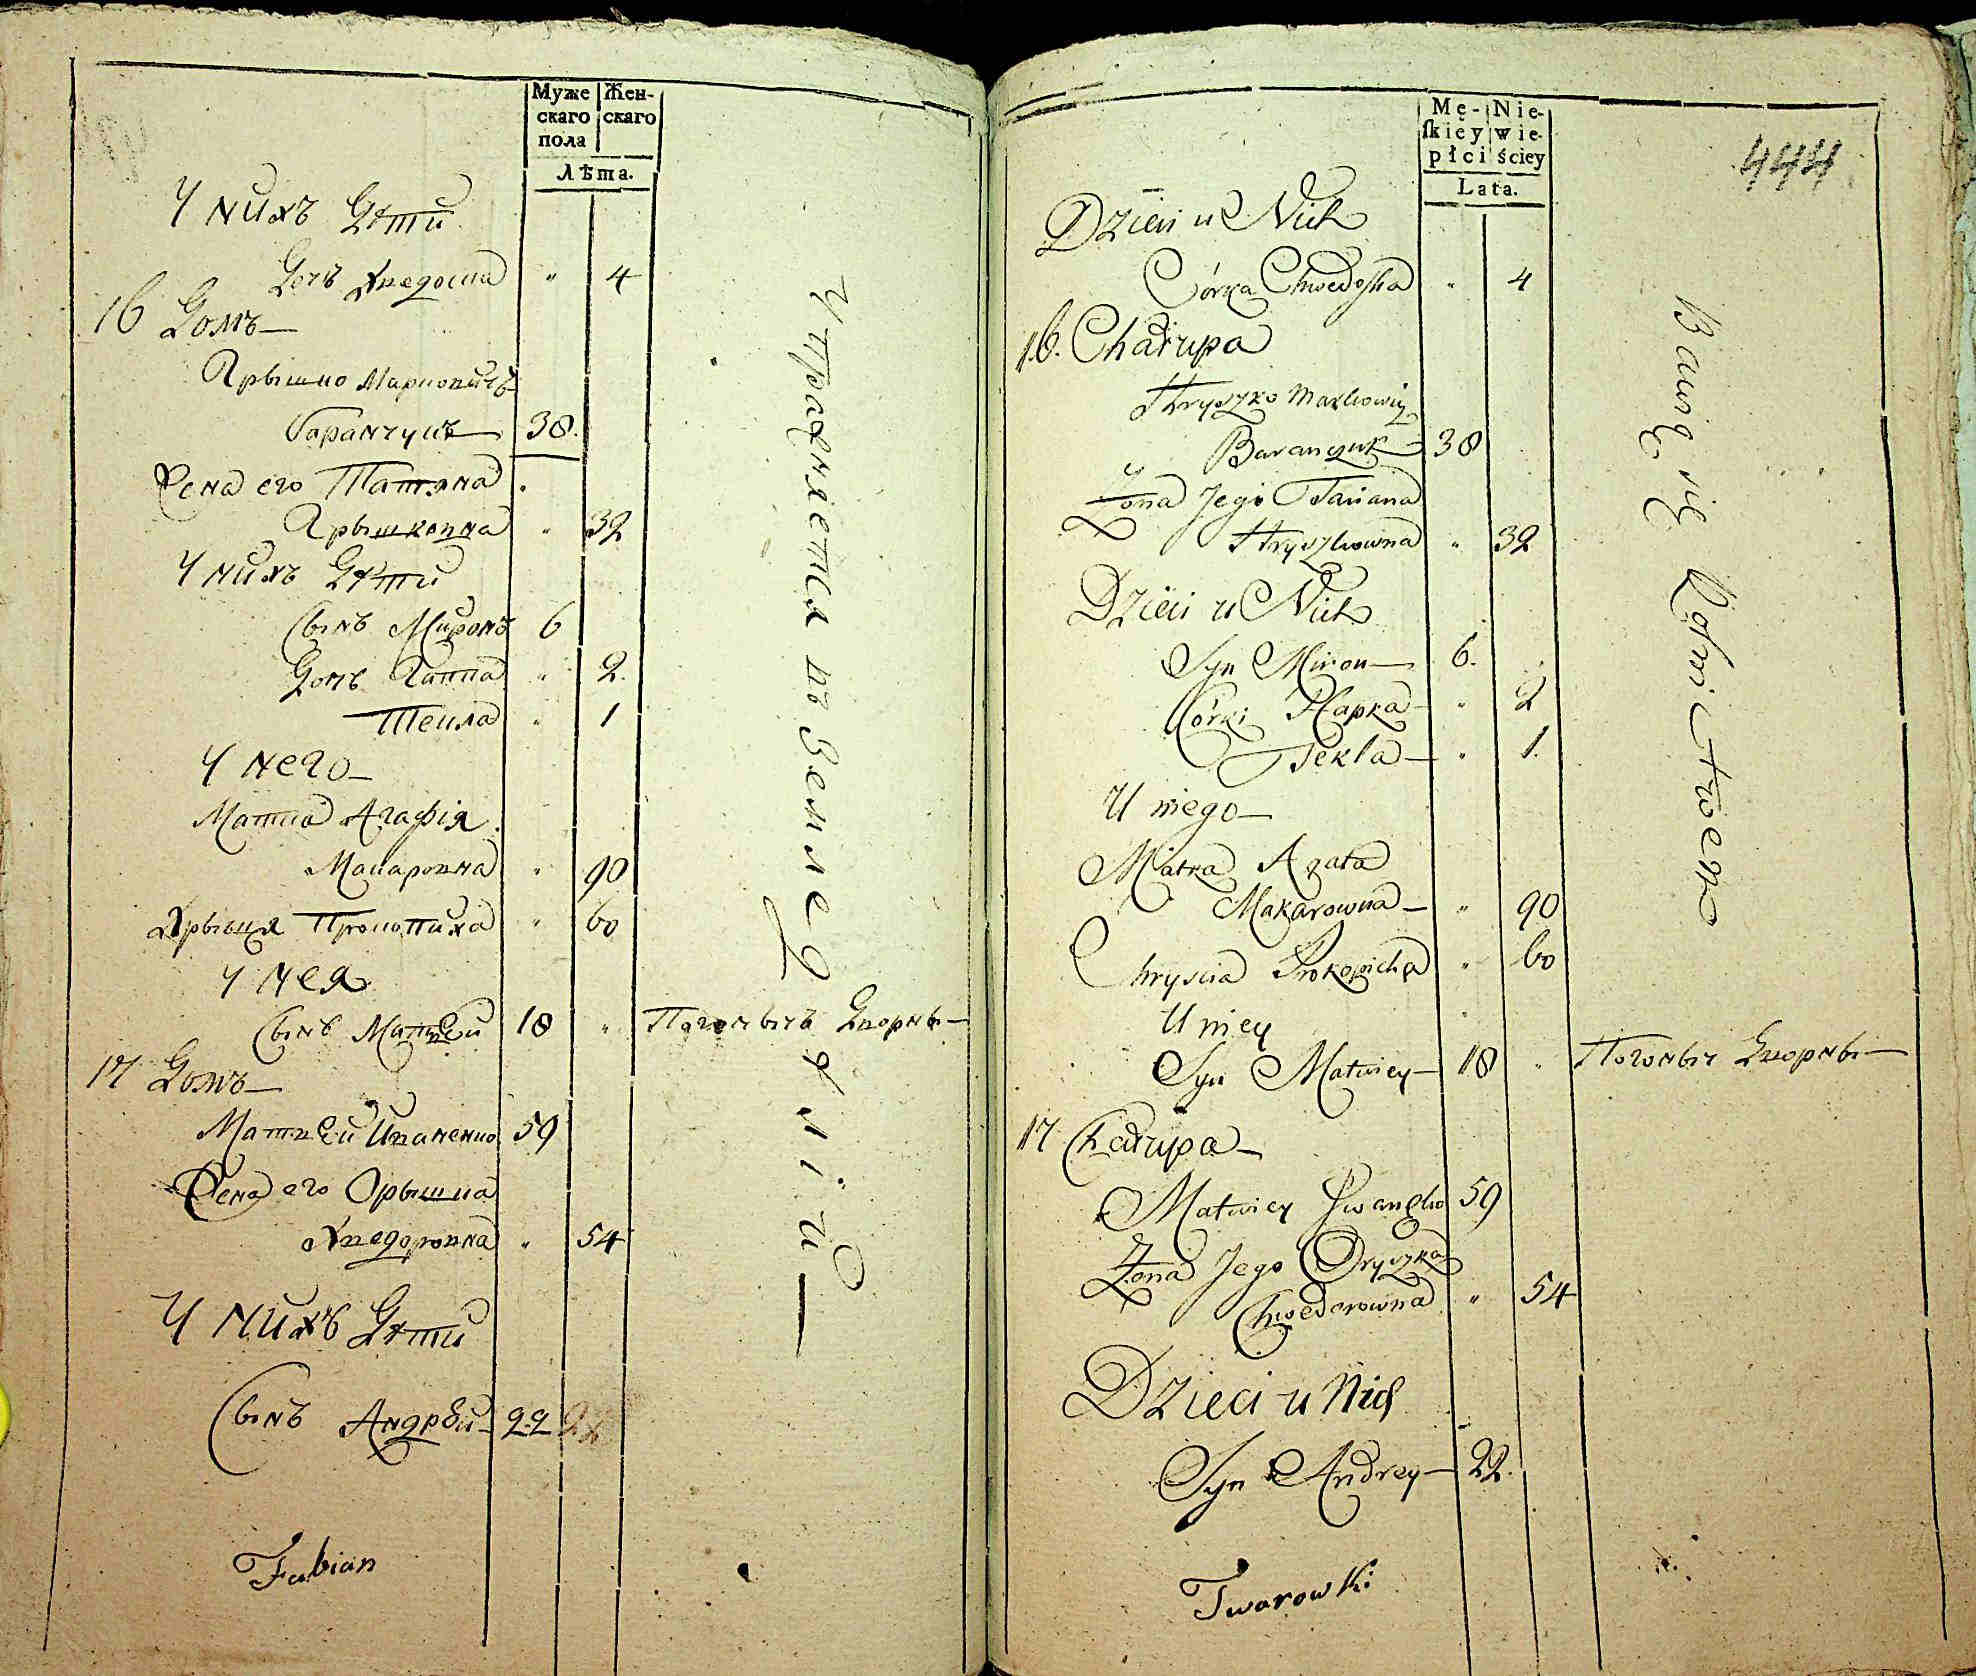 Муже Жен-
скаго скаго
пола
Лѣта.
У нихъ дѣти
Дочь Хведоска " 4
16 Домъ
Грышко Марковичъ
Баранчукъ 38.
Жена его Татяна
Грышковна " 32
У нихъ дѣти
Сынъ Миронъ 6
Дочь Гапка " 2.
Текла " 1
У него
Матка Агафія
Макаровна " 90
Хрыстя Прокопиха " 60
У нея
Сынъ Матвей 18 "
17 Домъ
Матвей Иваненко 59
Жена его Орышка
Хведоровна " 54
У нихъ дѣти
Сынъ Андрей 22
Fabian
Упражняется въ Земледѣліи
Mę- Nie-
skiey wie-
płci ściey
Lata.
444
Dzieci u Nich
Córka Chwedoska " 4
16. Chałupa
Hryszko Markowicz
Baranczuk 38
Żona Jego Taciana
Hryszkowna " 32
Dzieci u Nich
Syn Miron 6.
Córki Hapka " 2
Tekla " 1.
U niego
Matka Agata
Makarowna " 90
Chryscia Prokopicha " 60
U niey
Syn Matwiey 18 "
17 Chałupa
Matwiey Iwanenko 59
Żona Jego Oryszka
Chwedorowna " 54
Dzieci u Nich
Syn Andrey 22.
Twarowski
Bawią się Rolnictwem